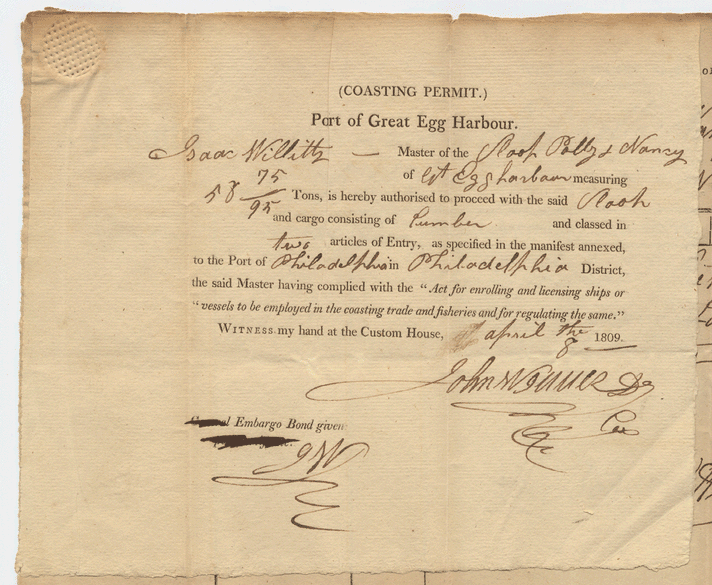 (COASTING PERMIT.)
Port of Great Egg Harbour.
Isaac Willitts — Master of the Sloop Polly & Nancy
of Gt Egg harbour measuring
58 75/95 Tons, is hereby authorised to proceed with the said Sloop
and cargo consisting of Lumber and classed in
two articles of Entry, as specified in the manifest annexed,
to the Port of Philadelphia in Philadelphia District,
the said Master having complied with the "Act for enrolling and licensing ships or
"vessels to be employed in the coasting trade and fisheries and for regulating the same."
WITNESS my hand at the Custom House, april the 8 — 1809.
John
Embargo Bond given
JW